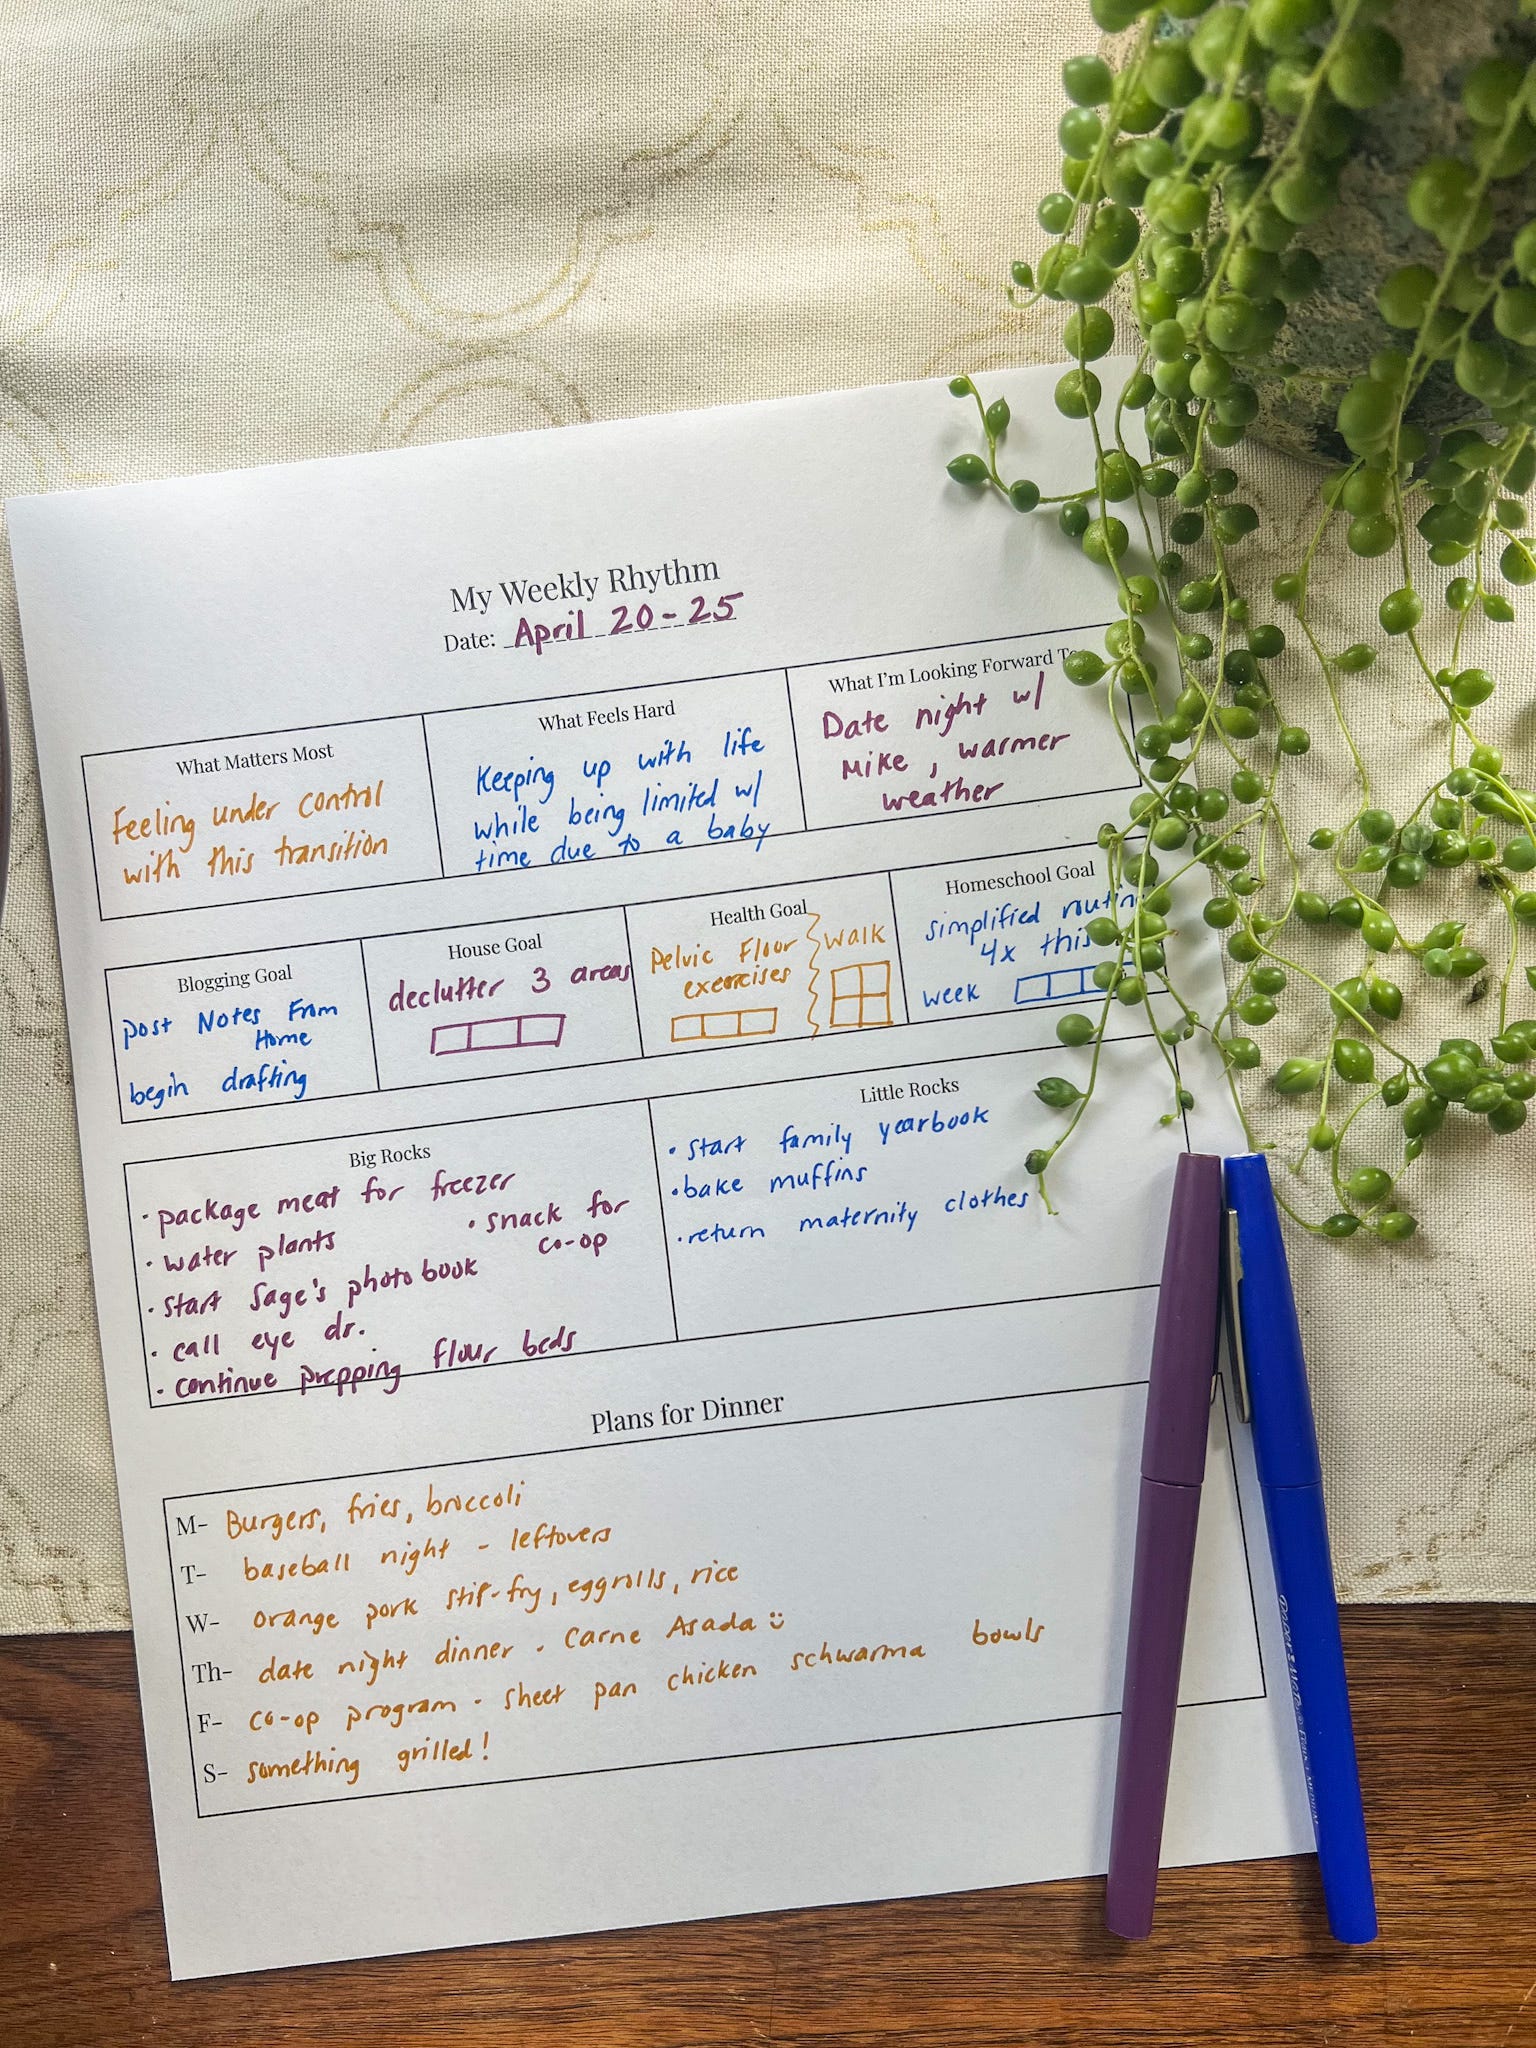 My Weekly Rhythm
Date: April 20-25
What Matters Most
Feeling under control
with this transition
What Feels Hard
Keeping up with life
while being limited w/
time due to a baby
What I'm Looking Forward
Date night w/
Mike, warmer
weather
Blogging Goal
post Notes From
Home
begin drafting
House Goal
declutter 3 areas
Health Goal
Pelvic Floor
exercises
Walk
Homeschool Goal
simplified
4x this
week
Big Rocks
· package meat for freezer
· water plants
· snack for
co-op
· start Sage's photobook
· call eye dr.
· continue prepping flour beds
Little Rocks
· start family yearbook
· bake muffins
· return maternity clothes
Plans for Dinner
M- Burgers, fries, broccoli
T- baseball night - leftovers
W- orange pork stif-fry, eggrolls, rice
Th- date night dinner - Carne Asada
F- co-op program - sheet pan chicken schwarma bowls
S- something grilled!